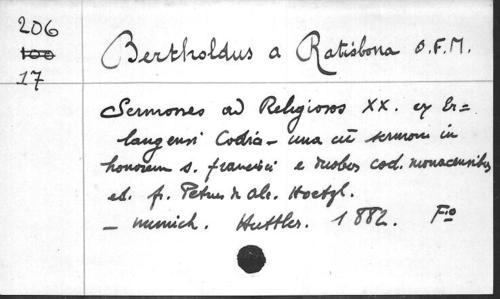 206
100
17
Bertholdus a Ratisbona O.F.M.
Sermones ad Religiosos XX. ex Er=
langensi Codice – una cū sermone in
honorem s. Francisci e duobus cod. monacensibus
ed. fr. Petrus de Alc. Hoetzl.
– Munich. Huttler. 1882. Fio